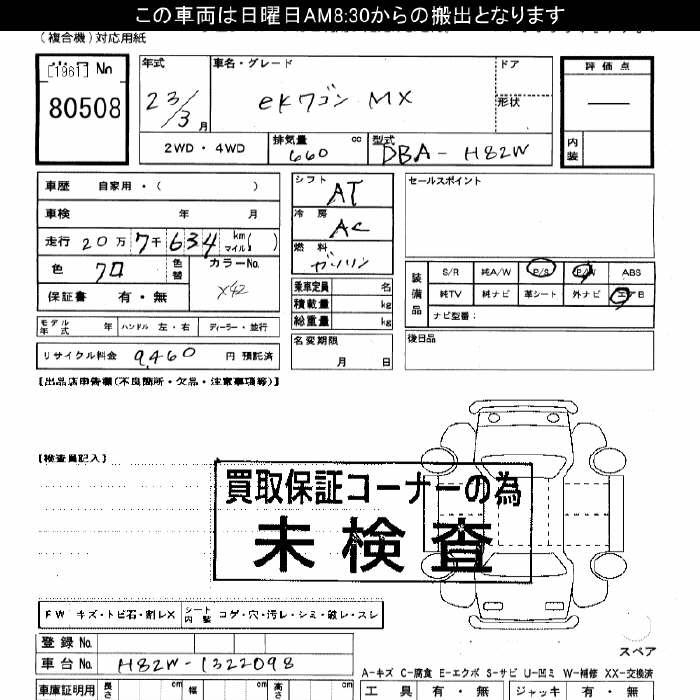 この車両は日曜日AM8:30からの搬出となります
(複合機)対応用紙
[1961] No
80508
年式
23/3月
車名・グレード
eKワゴン MX
ドア
形状
評価点
内装
2WD・4WD
排気量 660 cc
型式 DBA-H82W
車歴 自家用・( )
車検 年 月
走行 20万7千634 km マイル( )
色 クロ
色替
カラーNo.
X42
保証書 有・無
モデル年式 年 ハンドル 左・右 ディーラー・並行
リサイクル料金 9,460 円 預託済
シフト AT
冷房 AC
燃料 ガソリン
乗車定員 名
積載量 kg
総重量 kg
名変期限
月 日
セールスポイント
装備品
S/R 純A/W P/S P/W ABS
純TV 純ナビ 革シート 外ナビ エアB
ナビ型番:
後日品
【出品店申告欄(不良箇所・欠品・注意事項等)】
【検査員記入】
買取保証コーナーの為
未検査
FW キズ・トビ石・割レX シート内装 コゲ・穴・汚レ・シミ・破レ・スレ
登録No.
車台No. H82W-1322098
車庫証明用 長さ cm 幅 cm 高さ cm
スペア
A-キズ C-腐食 E-エクボ S-サビ U-凹ミ W-補修 XX-交換済
工具 有・無 ジャッキ 有・無